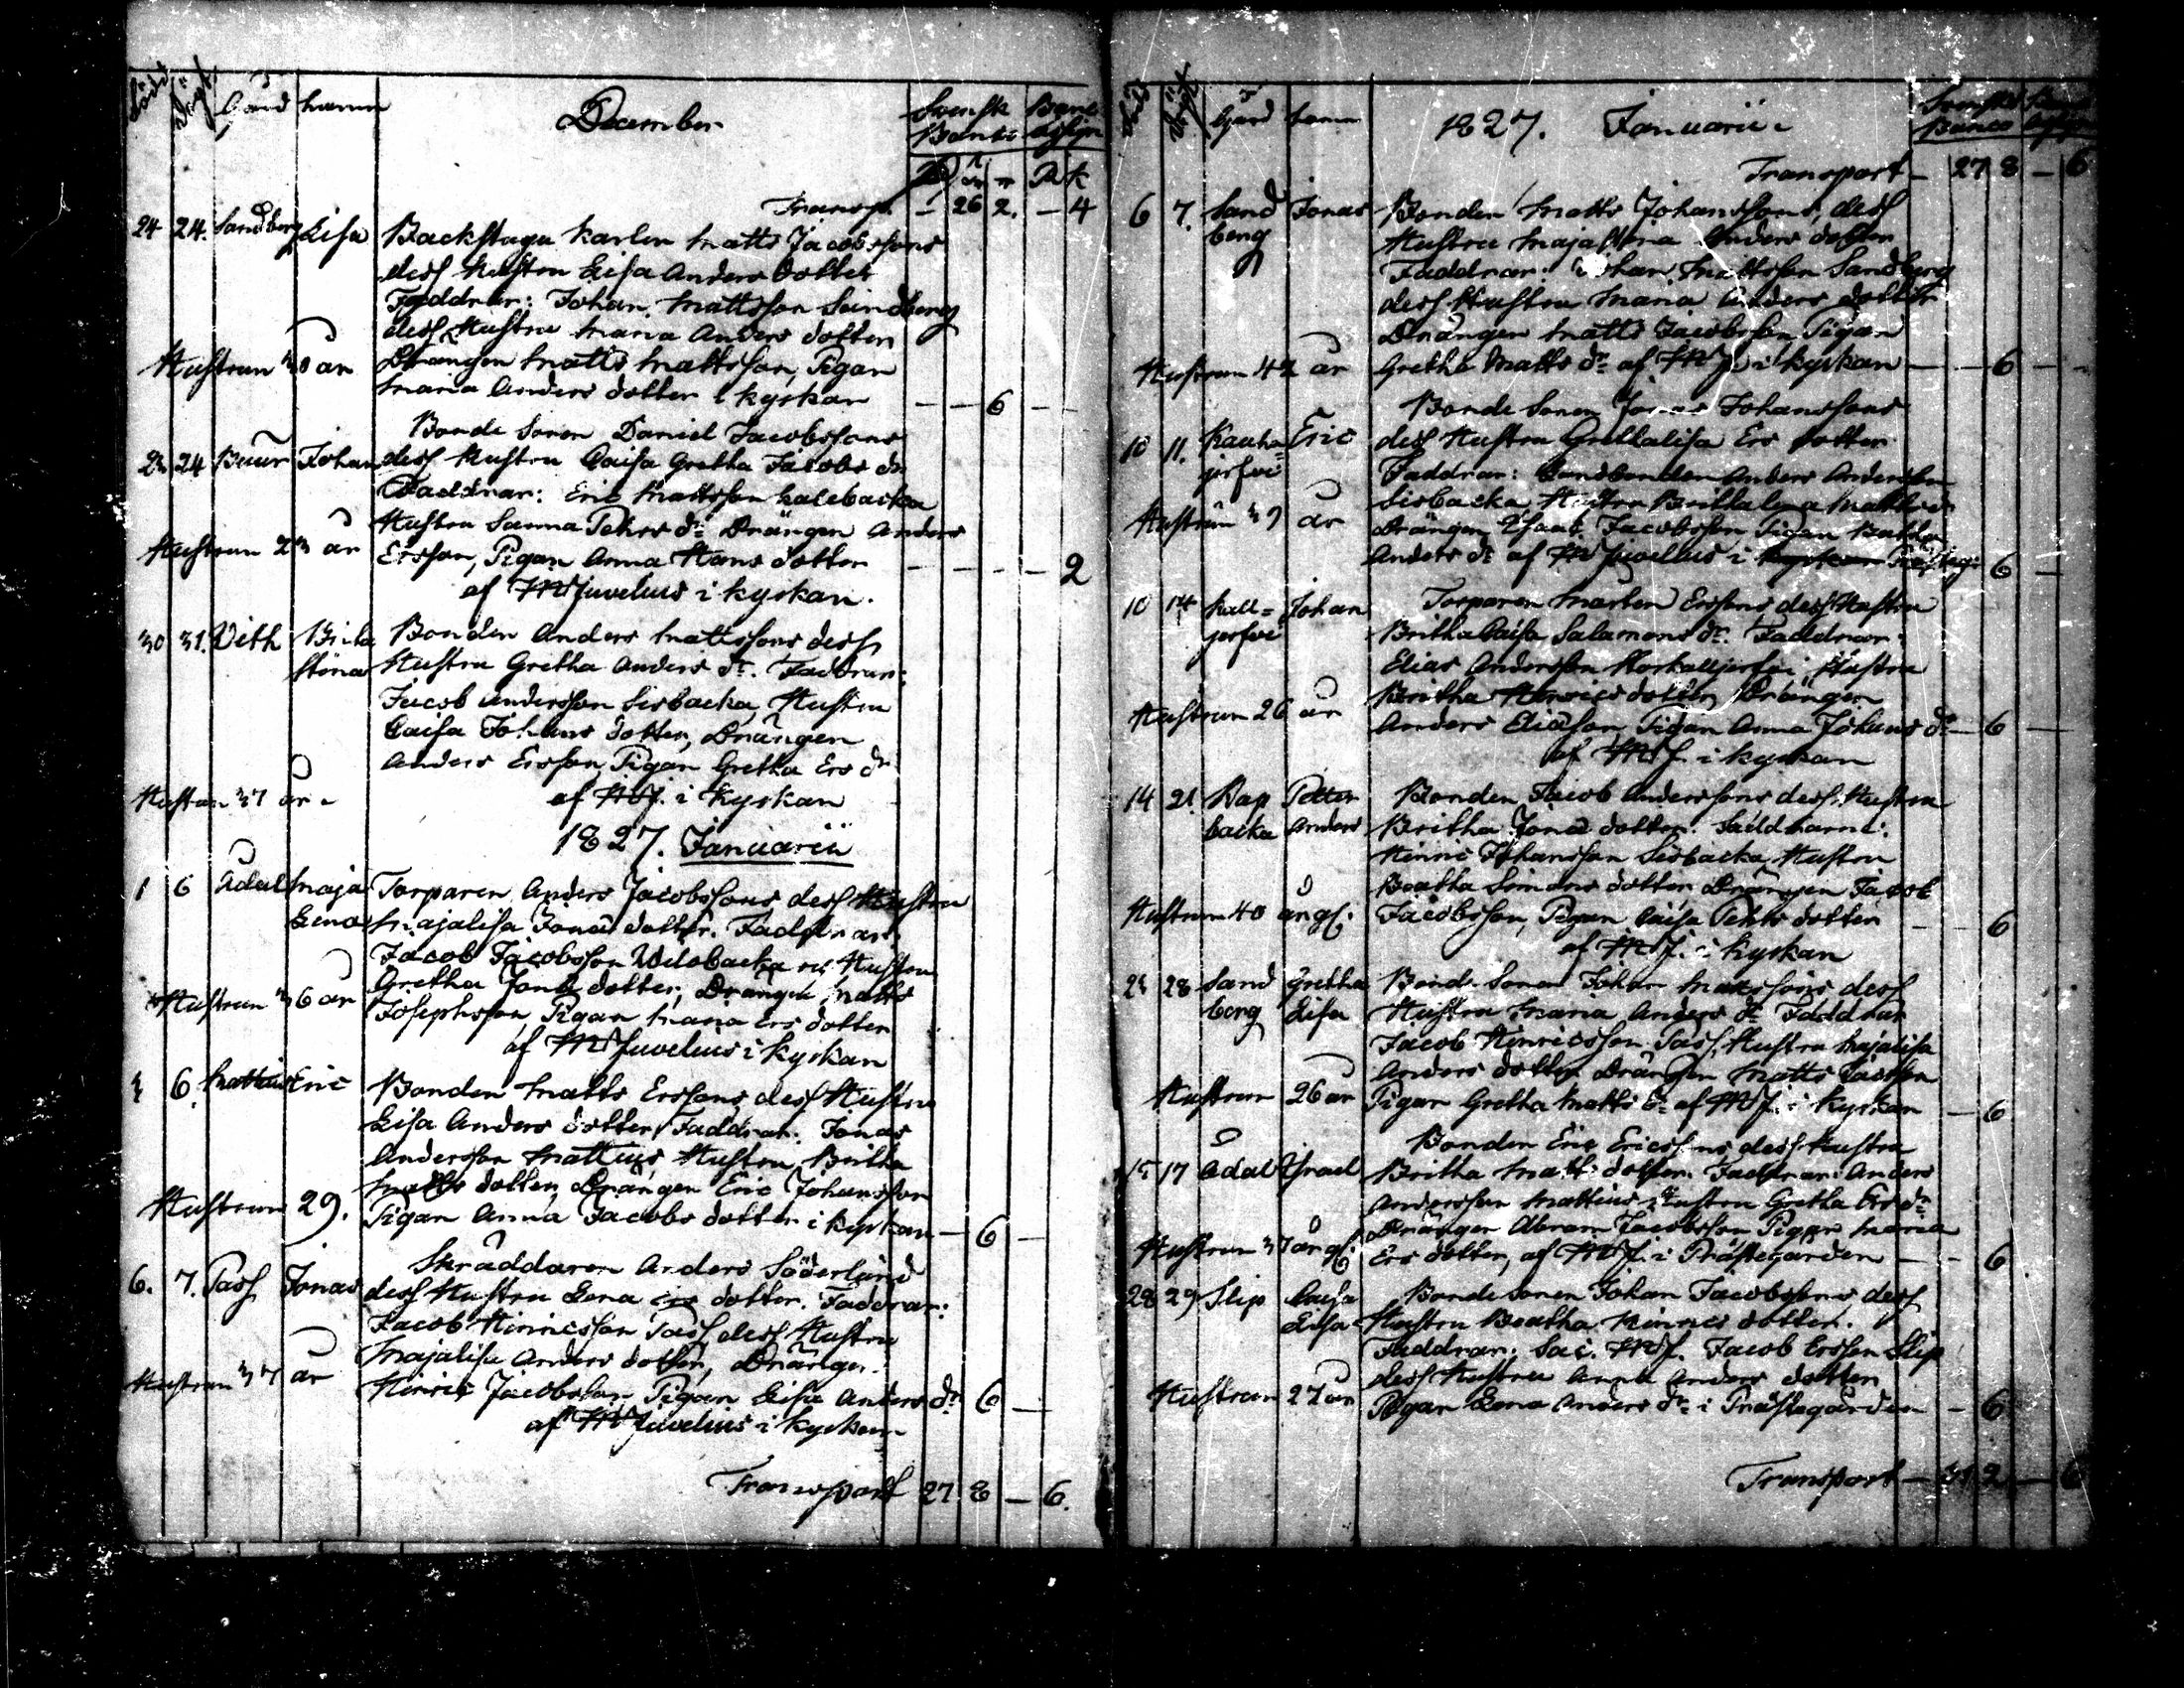 Född Döpt Gård hamn December Svensk Banco
R k
Transp. – 26 2. – 4
24 24. Sandberg Lisa Backstugu Karlen Matts Jacobssons
dess Hustru Lisa Anders dotter
Faddrar: Johan Mattsson Sandberg
dess Hustru Maria Anders dotter
Hustrun 30 år Drängen Matts Mattsson, Pigan
Maria Anders dotter i kyrkan – – 6 – –
Bonde Sonen Daniel Jacobssons
23 24 Buur Johan dess Hustru Caisa Gretha Jacobs dr
Faddrar: Eric Mattsson kalebacka
Hustru Sanna Pehrs dr Drängen Anders
Hustrun 23 år Ersson, Pigan Anna Hans dotter – – – – 2
af MWJuvelius i kyrkan.
30 31. Vith Brita Bonden Anders Mattssons dess
Stina Hustru Gretha Anders dr. Faddrar:
Jacob Andersson Sisbacka Hustru
Caisa Johans dotter, Drängen
Anders Ersson, Pigan Gretha Ers dr
Hustrun 37 år af MWJ. i kyrkan
1827. Januarii
1 6 Adal Maja Torparen Anders Jacobssons dess Hustru
Lena Majalisa Jonä dotter. Faddrar:
Jacob Jacobsson Hustru
Gretha Jonä dotter, Drängen Matts
Hustrun 36 år Josephsson, Pigan Maria Ers dotter
af MWJuvelius i kyrkan
3 6. Mattius Eric Bonden Matts Erssons dess Hustru
Lisa Anders dotter, Faddrar: Jonas
Andersson Mattius Hustru Britha
Matts dotter, Drängen Eric Johansson
Hustrun 29. Pigan Anna Jacobs dotter i kyrkan – 6 –
Skräddaren Anders Söderlund
6. 7. Pass Jonas dess Hustru Lena Ers dotter. Faddrar:
Jacob Hinricsson Pass dess Hustru
Majalisa Anders dotter, Drängen
Hustrun 37 år Hinric Jacobsson Pigan Lisa Anders dr 6 –
af MWJuvelius i kyrkan
Transport 27 8 – 6.
Född Döpt Gård 1827. Januarii Svensk Banco
Transport – 27 8 – 6
6 7. Sand Jonas Bonden Matts Johanssons, dess
berg Hustru Maja Stina Anders dotter
Faddrar: Johan Mattsson Sandberg
dess Hustru Maria Anders dotter
Drängen Matts Jacobsson Pigan
Hustrun 42 år Gretha Matts dr af MWJ. i kyrkan – – 6 – –
Bonde Sonen Jonas Johanssons
10 11. Kauha= Eric dess Hustru Grettalisa Ers dotter
jerfvi Faddrar: Bonden Anders Andersson
Sisbacka Hustru Brithalena Matts dr
Hustrun 39 år Drängen Isaac Jacobsson Pigan
Anders dr af MWJuvelius i kyrkan Prästeg: 6 –
10 14 Kall= Johan Torparen Mårten Erssons dess Hustru
jerfvi Britha Caisa Salamons dr. Faddrar:
Elias Andersson Hustru
Britha Hinrics dotter, Drängen
Hustrun 26 år Anders Eliasson Pigan Anna Johans dr – 6 –
af MWJ. i kyrkan
14 21 Rap Petter Bonden Jacob Anderssons dess Hustru
backa Anders Britha Jonä dotter. Faddrarne:
Hinric Johansson Sisbacka Hustru
Beatha Simons dotter Drängen Jacob
Hustrun 40 år gl. Jacobsson, Pigan Caisa Pehrs dotter – – 6
af MWJ. i kyrkan
23 28 Sand Gretha Bonde Sonen Johan Mattssons dess
berg Lisa Hustru Maria Anders dr Faddrar
Jacob Hinricsson Pass, Hustru Majalisa
Anders dotter Drängen Matts
Hustrun 26 år Pigan Gretha Matts dr af MWJ. i kyrkan – 6
Bonden Eric Ericssons dess Hustru
15 17 Adal Israel Britha Matts dotter. Faddrar: Anders
Andersson Mattius, Hustru Gretha Ers dr
Drängen Abram Jacobsson, Pigan Maria
Hustrun 37 år gl. Ers dotter, af MWJ. i Prästegården – – 6
28 29 Slip Caisa Bonde Sonen Johan Jacobssons dess
Lisa Hustru Beatha Hinrics dotter.
Faddrar: Sac. MWJ. Jacob Ersson Slip
dess Hustru Anna Anders dotter
Hustrun 27 år Pigan Lena Anders dr i Prästegården – 6
Transport – 31 2 – 6